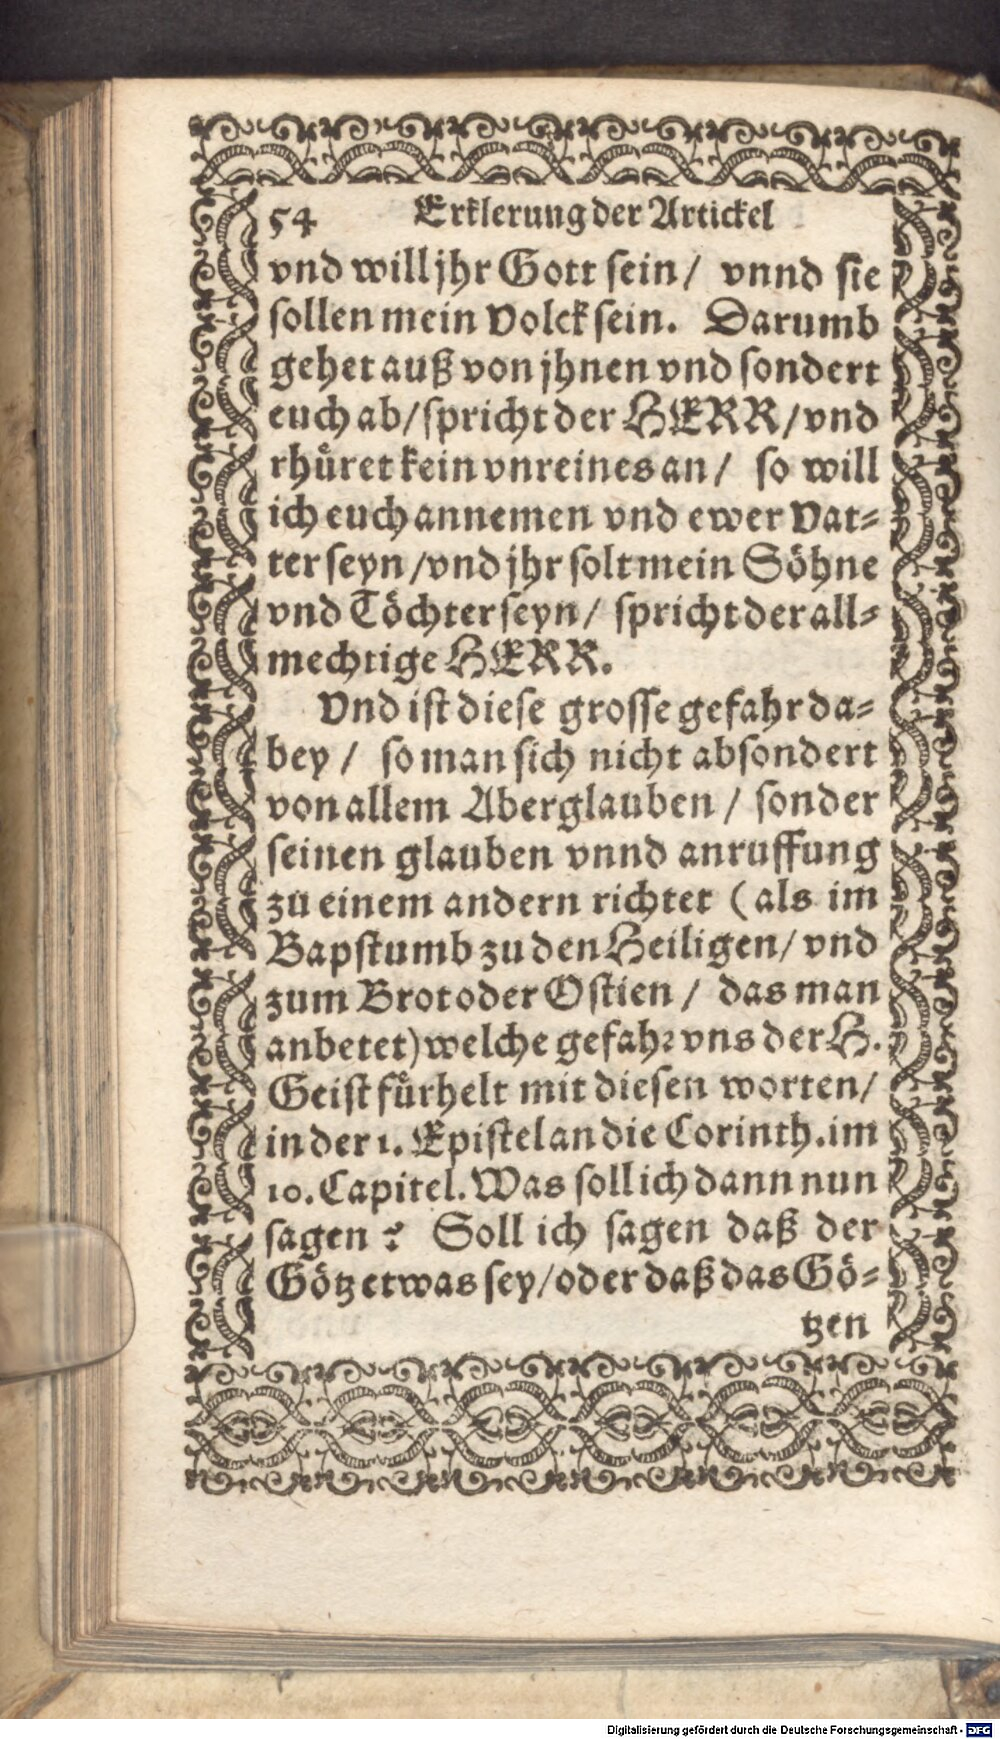 54 Erklerung der Artickel
vnd will jhr Gott sein / vnnd sie
sollen mein Volck sein. Darumb
gehet auß von jhnen vnd sondert
euch ab / spricht der HERR / vnd
rhüret kein vnreines an / so will
ich euch annemen vnd ewer Vat⸗
ter seyn / vnd jhr solt mein Söhne
vnd Töchter seyn / spricht der all⸗
mechtige HERR.
Vnd ist diese grosse gefahr da⸗
bey / so man sich nicht absondert
von allem Aberglauben / sonder
seinen glauben vnnd anruffung
zu einem andern richtet (als im
Bapstumb zu den Heiligen / vnd
zum Brot oder Ostien / das man
anbetet) welche gefahr vns der H.
Geist fürhelt mit diesen worten /
in der 1. Epistel an die Corinth. im
10. Capitel. Was soll ich dann nun
sagen? Soll ich sagen daß der
Götz etwas sey / oder daß das Gö⸗
tzen
Digitalisierung gefördert durch die Deutsche Forschungsgemeinschaft - DFG